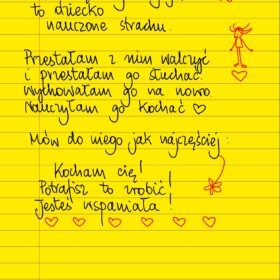 to dziecko
nauczone strachu.
Przestałam z nim walczyć
i przestałam go słuchać.
Wychowałam go na nowo.
Nauczyłam go kochać ♡
Mów do niego jak najczęściej:
Kocham cię!
Potrafisz to zrobić!
Jesteś wspaniała!